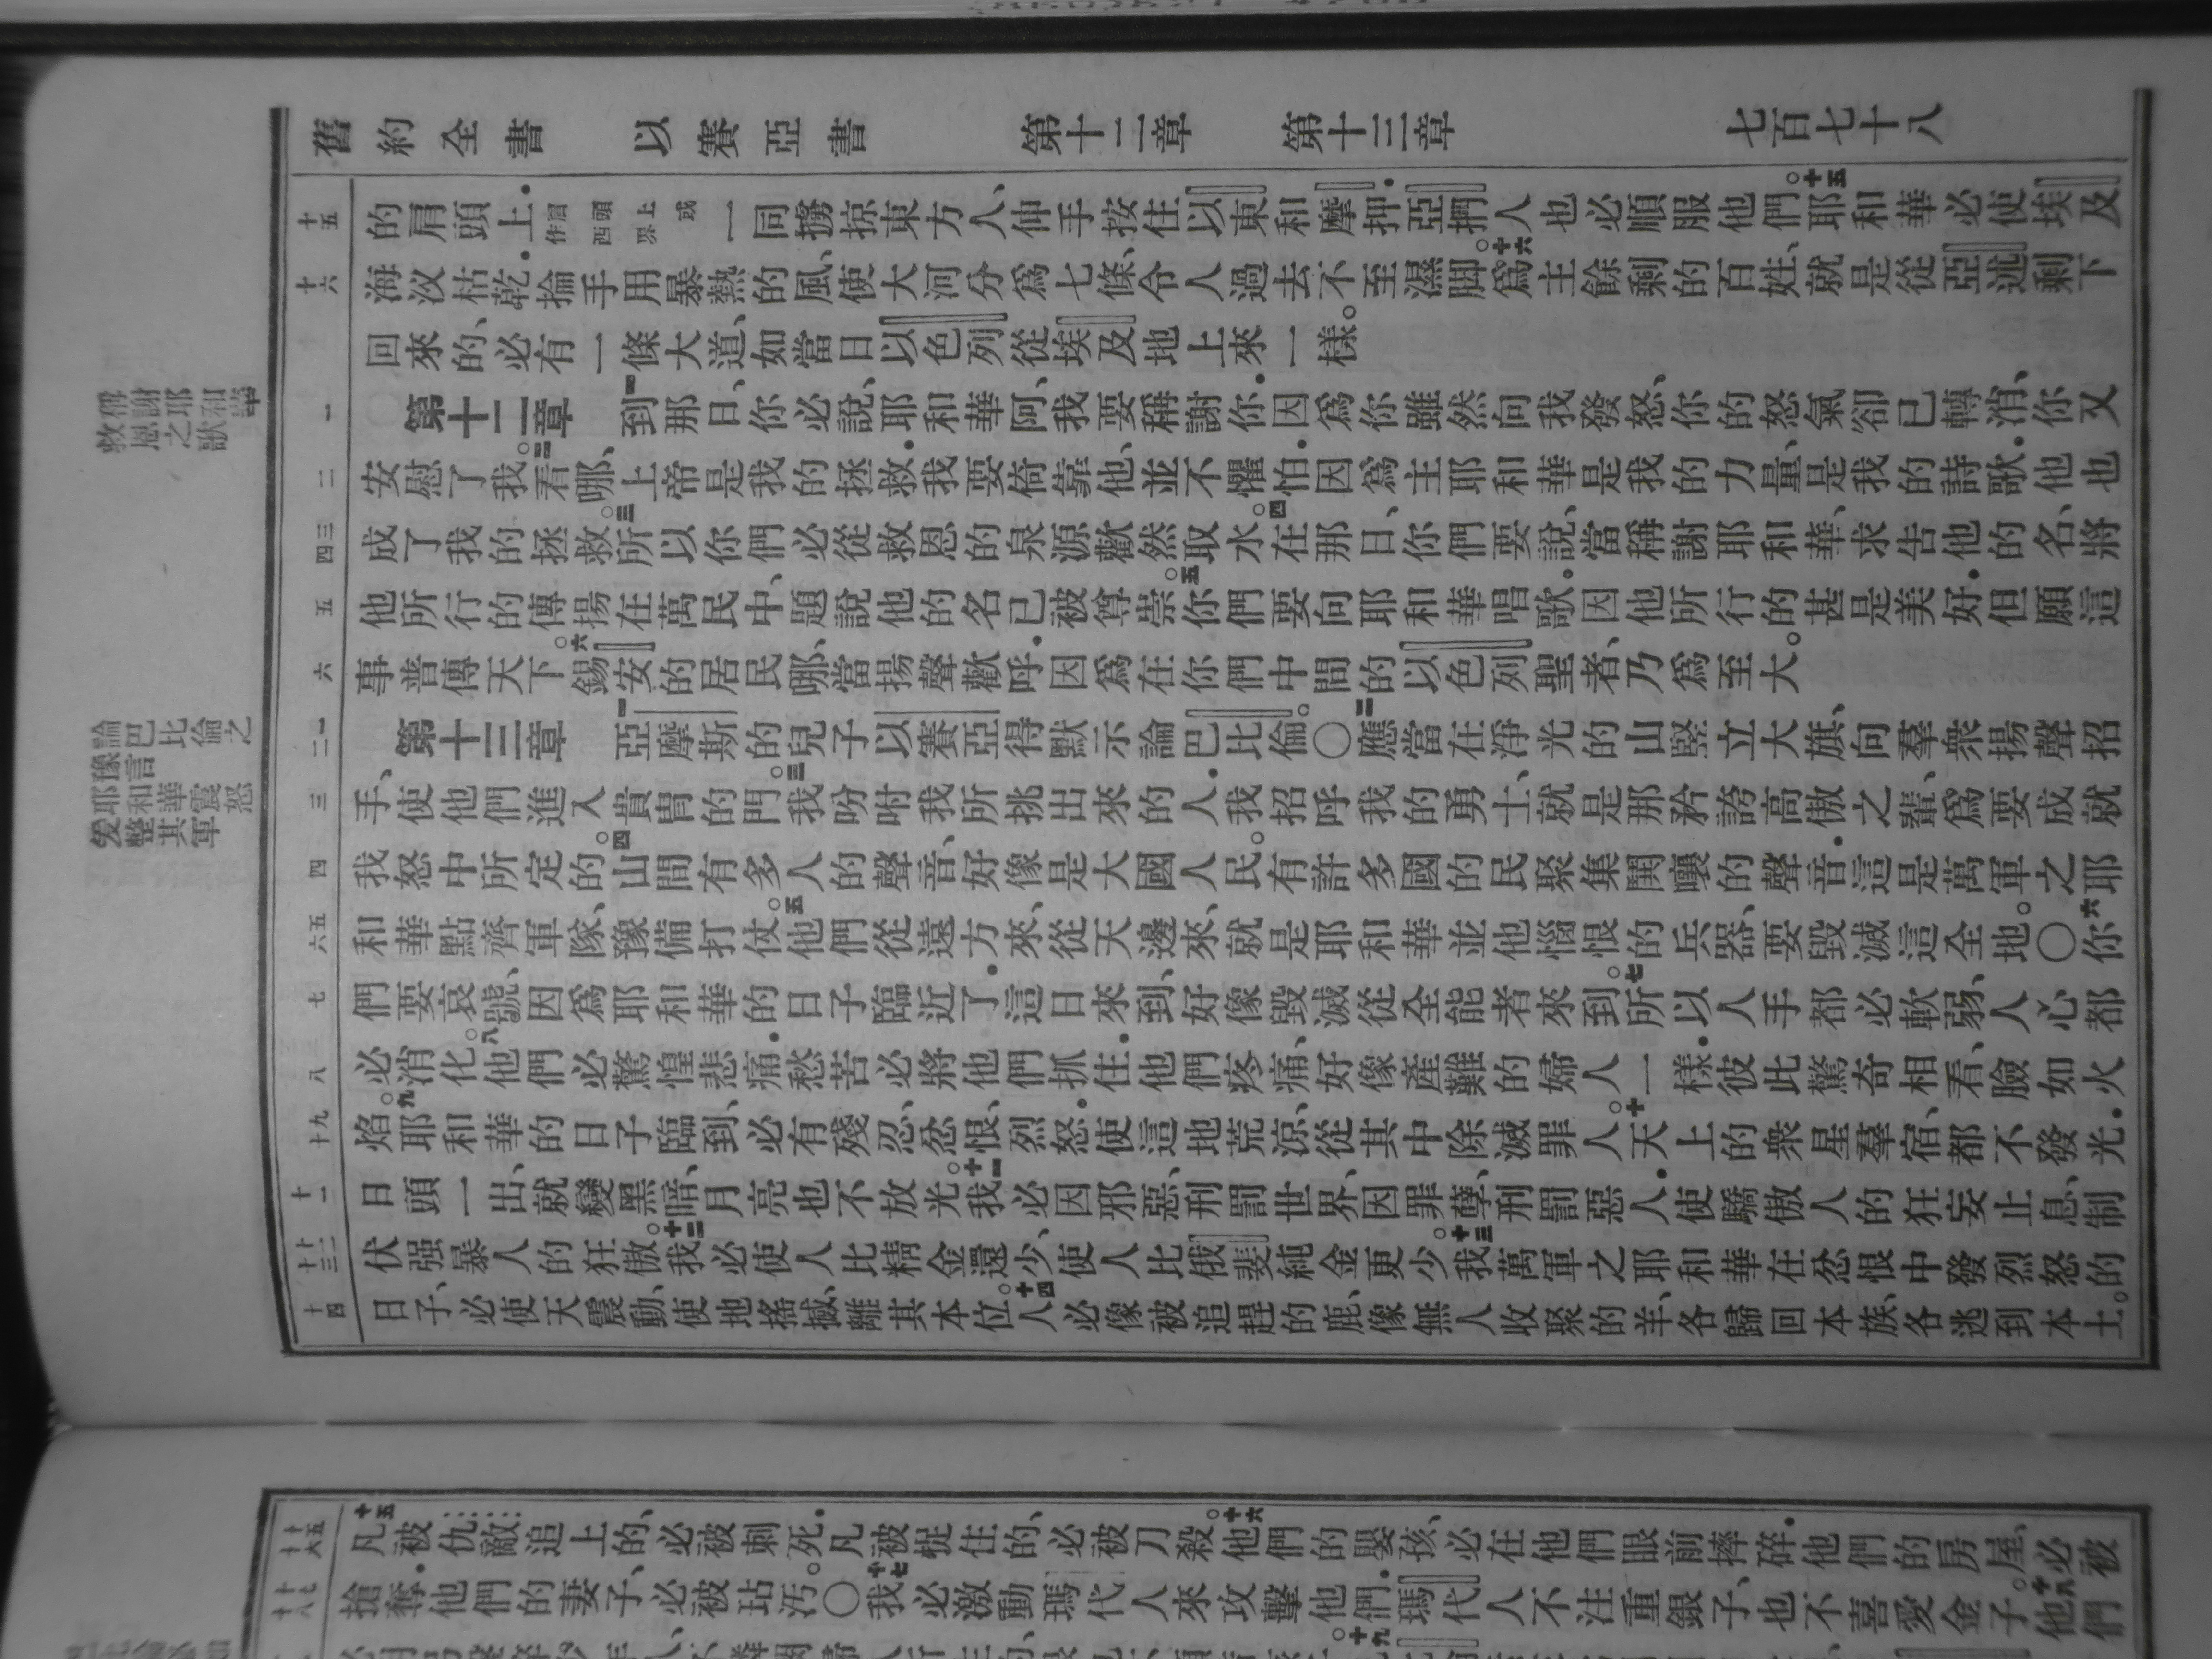 舊約全書 以賽亞書 第十二章 第十三章 七百七十八
十五 的肩頭上.一同擄掠東方人、伸手按住以東和摩押.亞捫人也必順服他們。十五耶和華必使埃及
十六 海汊枯乾.掄手用暴熱的風、使大河分爲七條、令人過去不至濕脚。十六爲主餘剩的百姓、就是從亞述剩下
回來的、必有一條大道、如當日以色列從埃及地上來一樣。
一 第十二章 一到那日、你必說、耶和華阿、我要稱謝你.因爲你雖然向我發怒、你的怒氣卻已轉消、你又
二 安慰了我。二看哪、上帝是我的拯救.我要倚靠他、並不懼怕.因爲主耶和華是我的力量、是我的詩歌.他也
三四 成了我的拯救。三所以你們必從救恩的泉源歡然取水。四在那日、你們要說、當稱謝耶和華、求告他的名、將
五 他所行的傳揚在萬民中、題說他的名已被尊崇。五你們要向耶和華唱歌.因他所行的甚是美好.但願這
六 事普傳天下。六錫安的居民哪、當揚聲歡呼.因爲在你們中間的以色列聖者、乃爲至大。
一二 第十三章 一亞摩斯的兒子以賽亞得默示論巴比倫。〇二應當在淨光的山豎立大旗、向羣衆揚聲招
三 手、使他們進入貴冑的門。三我吩咐我所挑出來的人.我招呼我的勇士、就是那矜誇高傲之輩、爲要成就
四 我怒中所定的。四山間有多人的聲音、好像是大國人民。有許多國的民聚集鬨嚷的聲音.這是萬軍之耶
五六 和華點齊軍隊、豫備打仗。五他們從遠方來、從天邊來、就是耶和華並他惱恨的兵器、要毀滅這全地。〇六你
七 們要哀號、因爲耶和華的日子臨近了.這日來到、好像毀滅從全能者來到。七所以人手都必軟弱、人心都
八 必消化。八他們必驚惶悲痛.愁苦必將他們抓住.他們疼痛、好像產難的婦人一樣.彼此驚奇相看、臉如火
九十 焰。九耶和華的日子臨到、必有殘忍、忿恨、烈怒.使這地荒涼、從其中除滅罪人。十天上的衆星羣宿、都不發光.
十一 日頭一出、就變黑暗、月亮也不放光。十一我必因邪惡、刑罰世界、因罪孽、刑罰惡人.使驕傲人的狂妄止息、制
十二十三 伏强暴人的狂傲。十二我必使人比精金還少、使人比俄斐純金更少。十三我萬軍之耶和華在忿恨中發烈怒的
十四 日子、必使天震動、使地搖撼、離其本位。十四人必像被追趕的鹿、像無人收聚的羊、各歸回本族、各逃到本土。
稱謝耶和華救恩之歌
豫言巴比倫之
耶和華震怒
整其軍
十五十六 十五凡被仇敵追上的、必被刺死.凡被捉住的、必被刀殺。十六他們的嬰孩、必在他們眼前摔碎.他們的房屋、必被
十七十八 搶奪.他們的妻子、必被玷污。〇十七我必激動瑪代人來攻擊他們.瑪代人不注重銀子、也不喜愛金子。十八他們